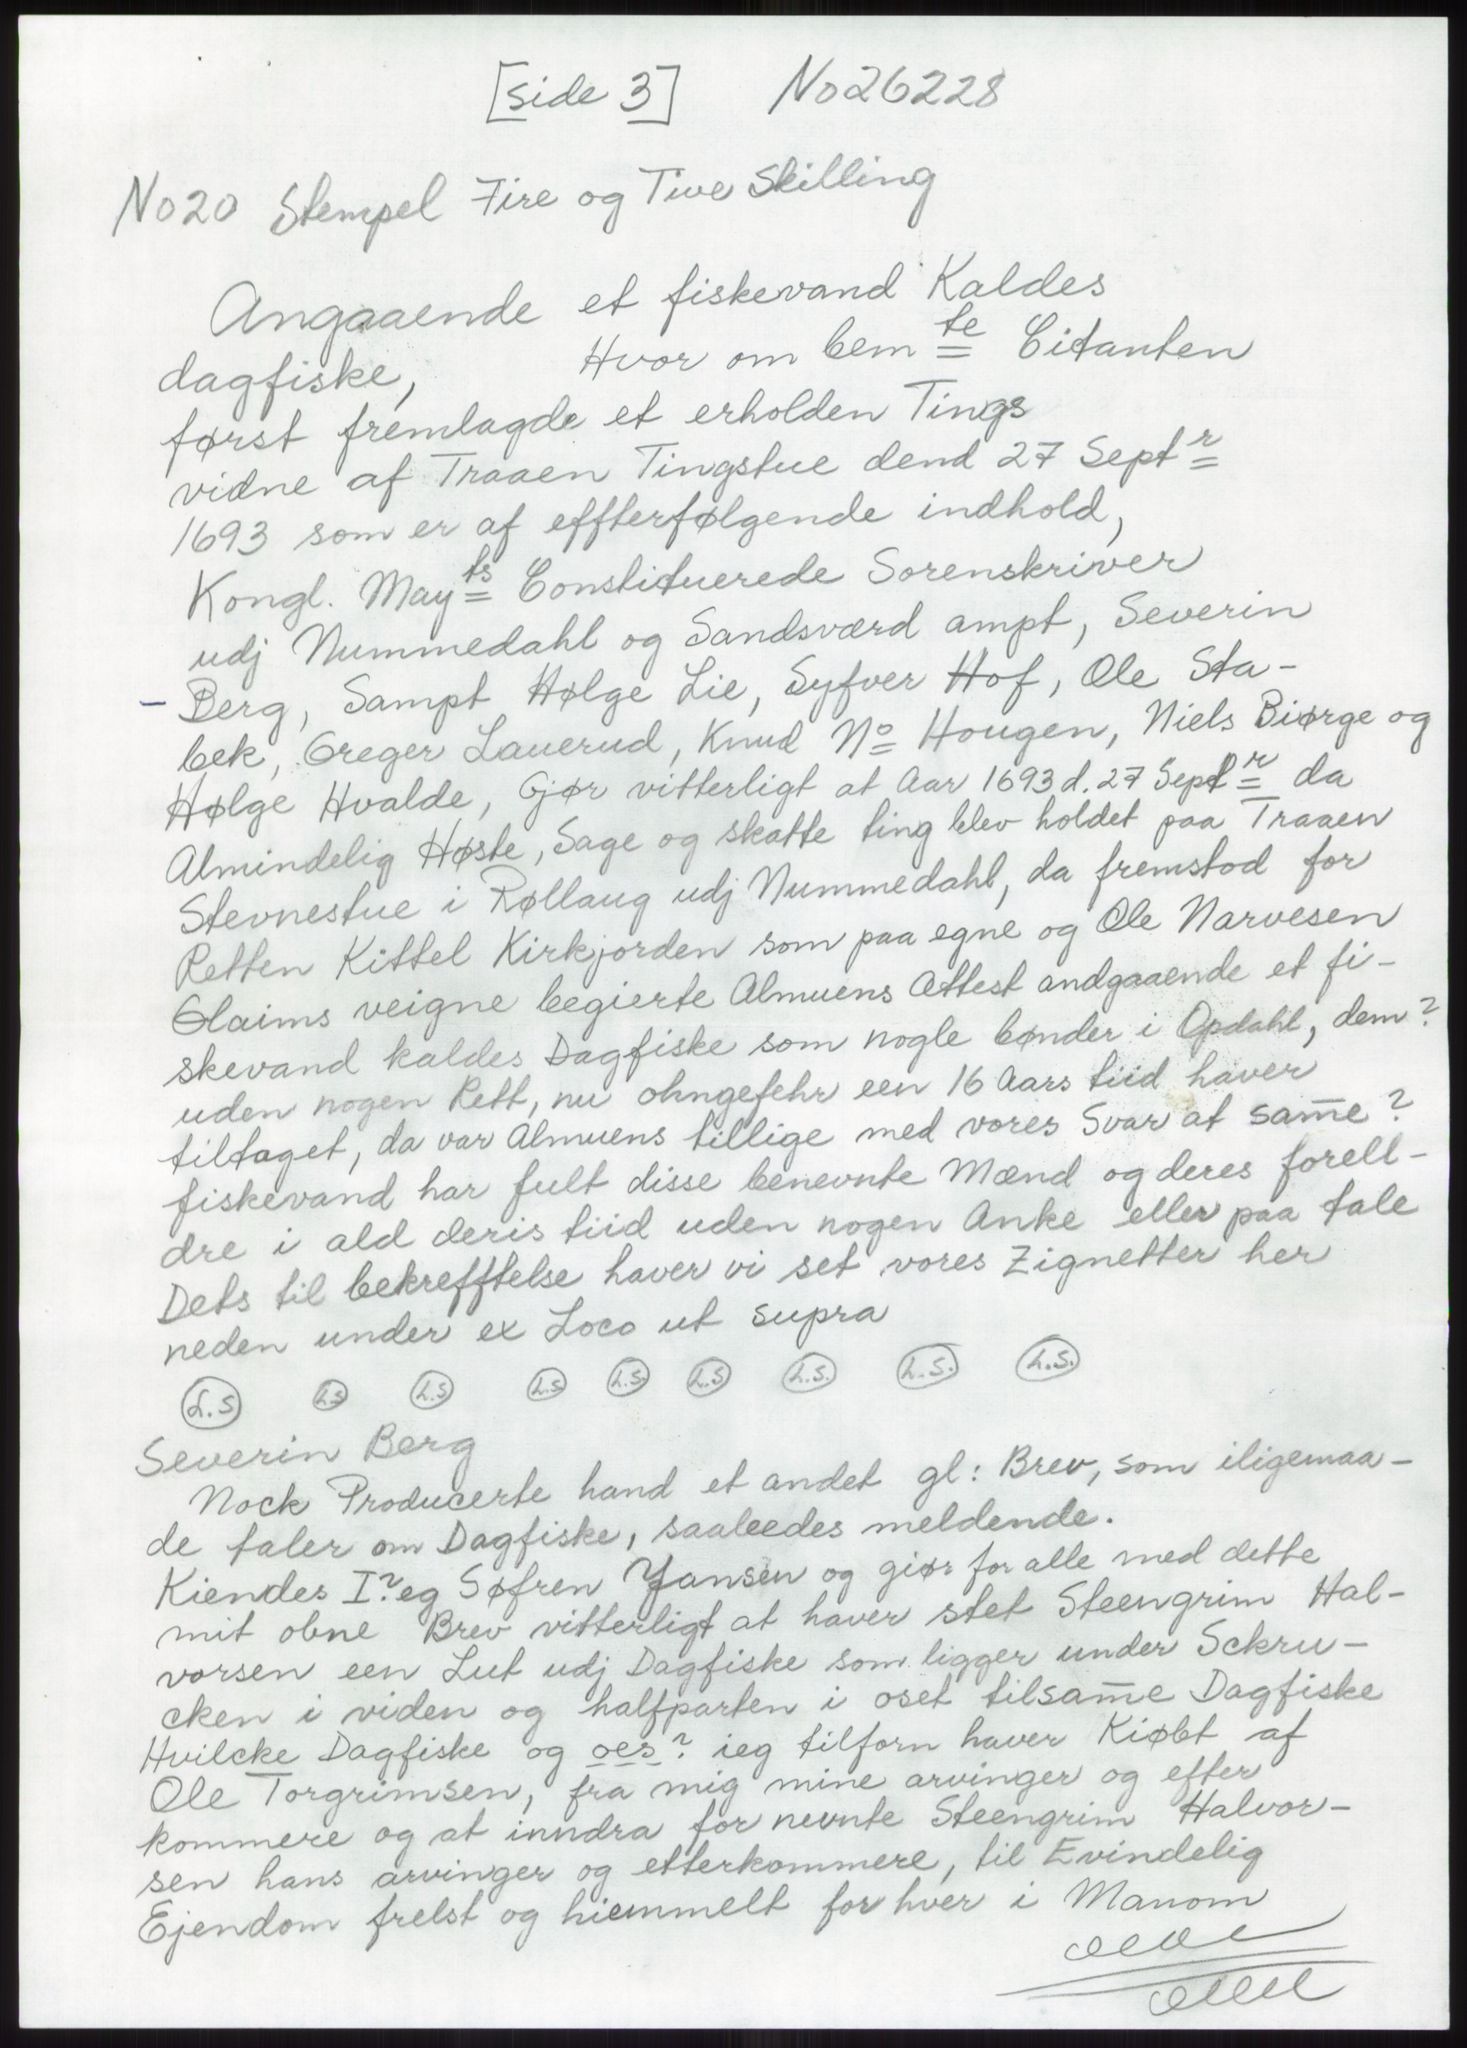 [side 3] No 26228
No 20 Stempel Fire og Tive Skilling
Angaaende et fiskevand Kaldes
dagfiske, Hvor om bemte Citanten
først fremlagde et erholden Tings
vidne af Traaen Tingstue dend 27 Septr
1693 som er af effterfølgende indhold,
Kongl. Mayts Constituerede Sorenskriver
udj Nummedahl og Sandsværd ampt, Severin
- Berg, Sampt Hølge Lie, Syfver Hof, Ole Sta-
bek, Greger Lauerud, Knud No Hougen, Niels Biørge og
Hølge Hvalde, Gjør vitterligt at Aar 1693 d. 27 Septr da
Almindelig Høste, Sage og skatte ting blev holdet paa Traaen
Stevnestue i Røllaug udj Nummedahl, da fremstod for
Retten Kittel Kirkjorden som paa egne og Ole Narvesen
Glaims veigne begierte Almuens Attest andgaaende et fi-
skevand kaldes Dagfiske som nogle bønder i Opdahl, dem?
uden nogen Rett, nu ohngefehr een 16 Aars tiid haver
tiltaget, da var Almuens tillige med vores Svar at sam̄e?
fiskevand har fult disse benevnte Mænd og deres forell-
dre i ald deris tiid uden nogen Anke eller paa tale
Dets til bekrefftelse haver vi set vores Zignetter her
neden under ex Loco ut supra
L.S L.S L.S L.S L.S L.S L.S. L.S. L.S.
Severin Berg
Nock Producerte hand et andet gl: Brev, som iligemaa-
de taler om Dagfiske, saaleedes meldende.
Kiendes I?eg Søfren Jansen og giør for alle med dette
mit obne Brev vitterligt at haver stet Steengrim Hal-
vorsen een Lut udj Dagfiske som ligger under Sckru-
cken i viden og halfparten i oset tilsam̄e Dagfiske
Hvilcke Dagfiske og oes? ieg tilforn haver Kiøbt af
Ole Torgrimsen, fra mig mine arvinger og efter
kommere og at inndra for nevnte Steengrim Halvor-
sen hans arvinger og etterkommere, til Evindelig
Ejendom frelst og hiemmelt for hver i Manom